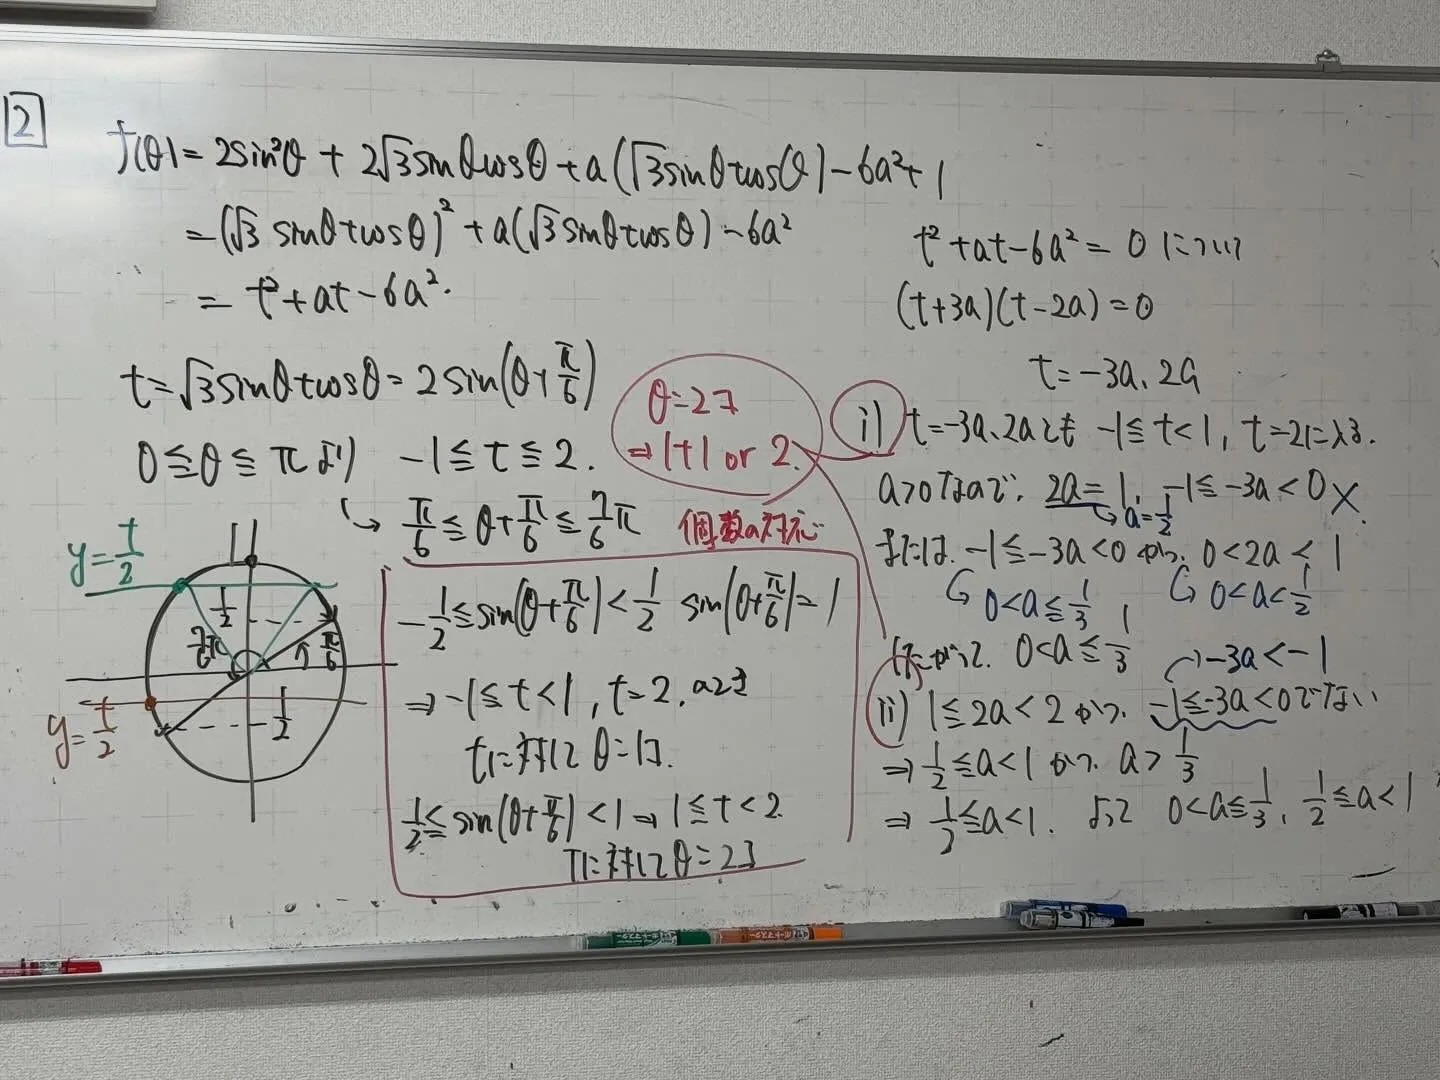 2
f(θ)=2sin²θ+2√3sinθcosθ+a(√3sinθ+cosθ)-6a²+1
=(√3sinθ+cosθ)²+a(√3sinθ+cosθ)-6a²
=t²+at-6a².
t=√3sinθ+cosθ=2sin(θ+π/6)
0≦θ≦πより -1≦t≦2.
π/6≦θ+π/6≦7/6π
y=t/2
1/2
7/6π
π/6
-1/2
y=t/2
θ=2コ
⇒1+1 or 2.
個数の対応
-1/2≦sin(θ+π/6)<1/2 sin(θ+π/6)=1
⇒-1≦t<1,t=2.のとき
tに対してθ=1コ.
1/2≦sin(θ+π/6)<1⇒1≦t<2.
Tに対してθ=2コ
t²+at-6a²=0について
(t+3a)(t-2a)=0
t=-3a、2a
i) t=-3a、2aとも -1≦t<1,t=2に入る.
a>0なので、2a=1、-1≦-3a<0 ×.
a=1/2
または、-1≦-3a<0 かつ、0<2a<1
0<a≦1/3 0<a<1/2
したがって、0<a≦1/3
-3a<-1
ii) 1≦2a<2 かつ、-1≦-3a<0でない
⇒1/2≦a<1 かつ、a>1/3
⇒1/2≦a<1. よって 0<a≦1/3、1/2≦a<1